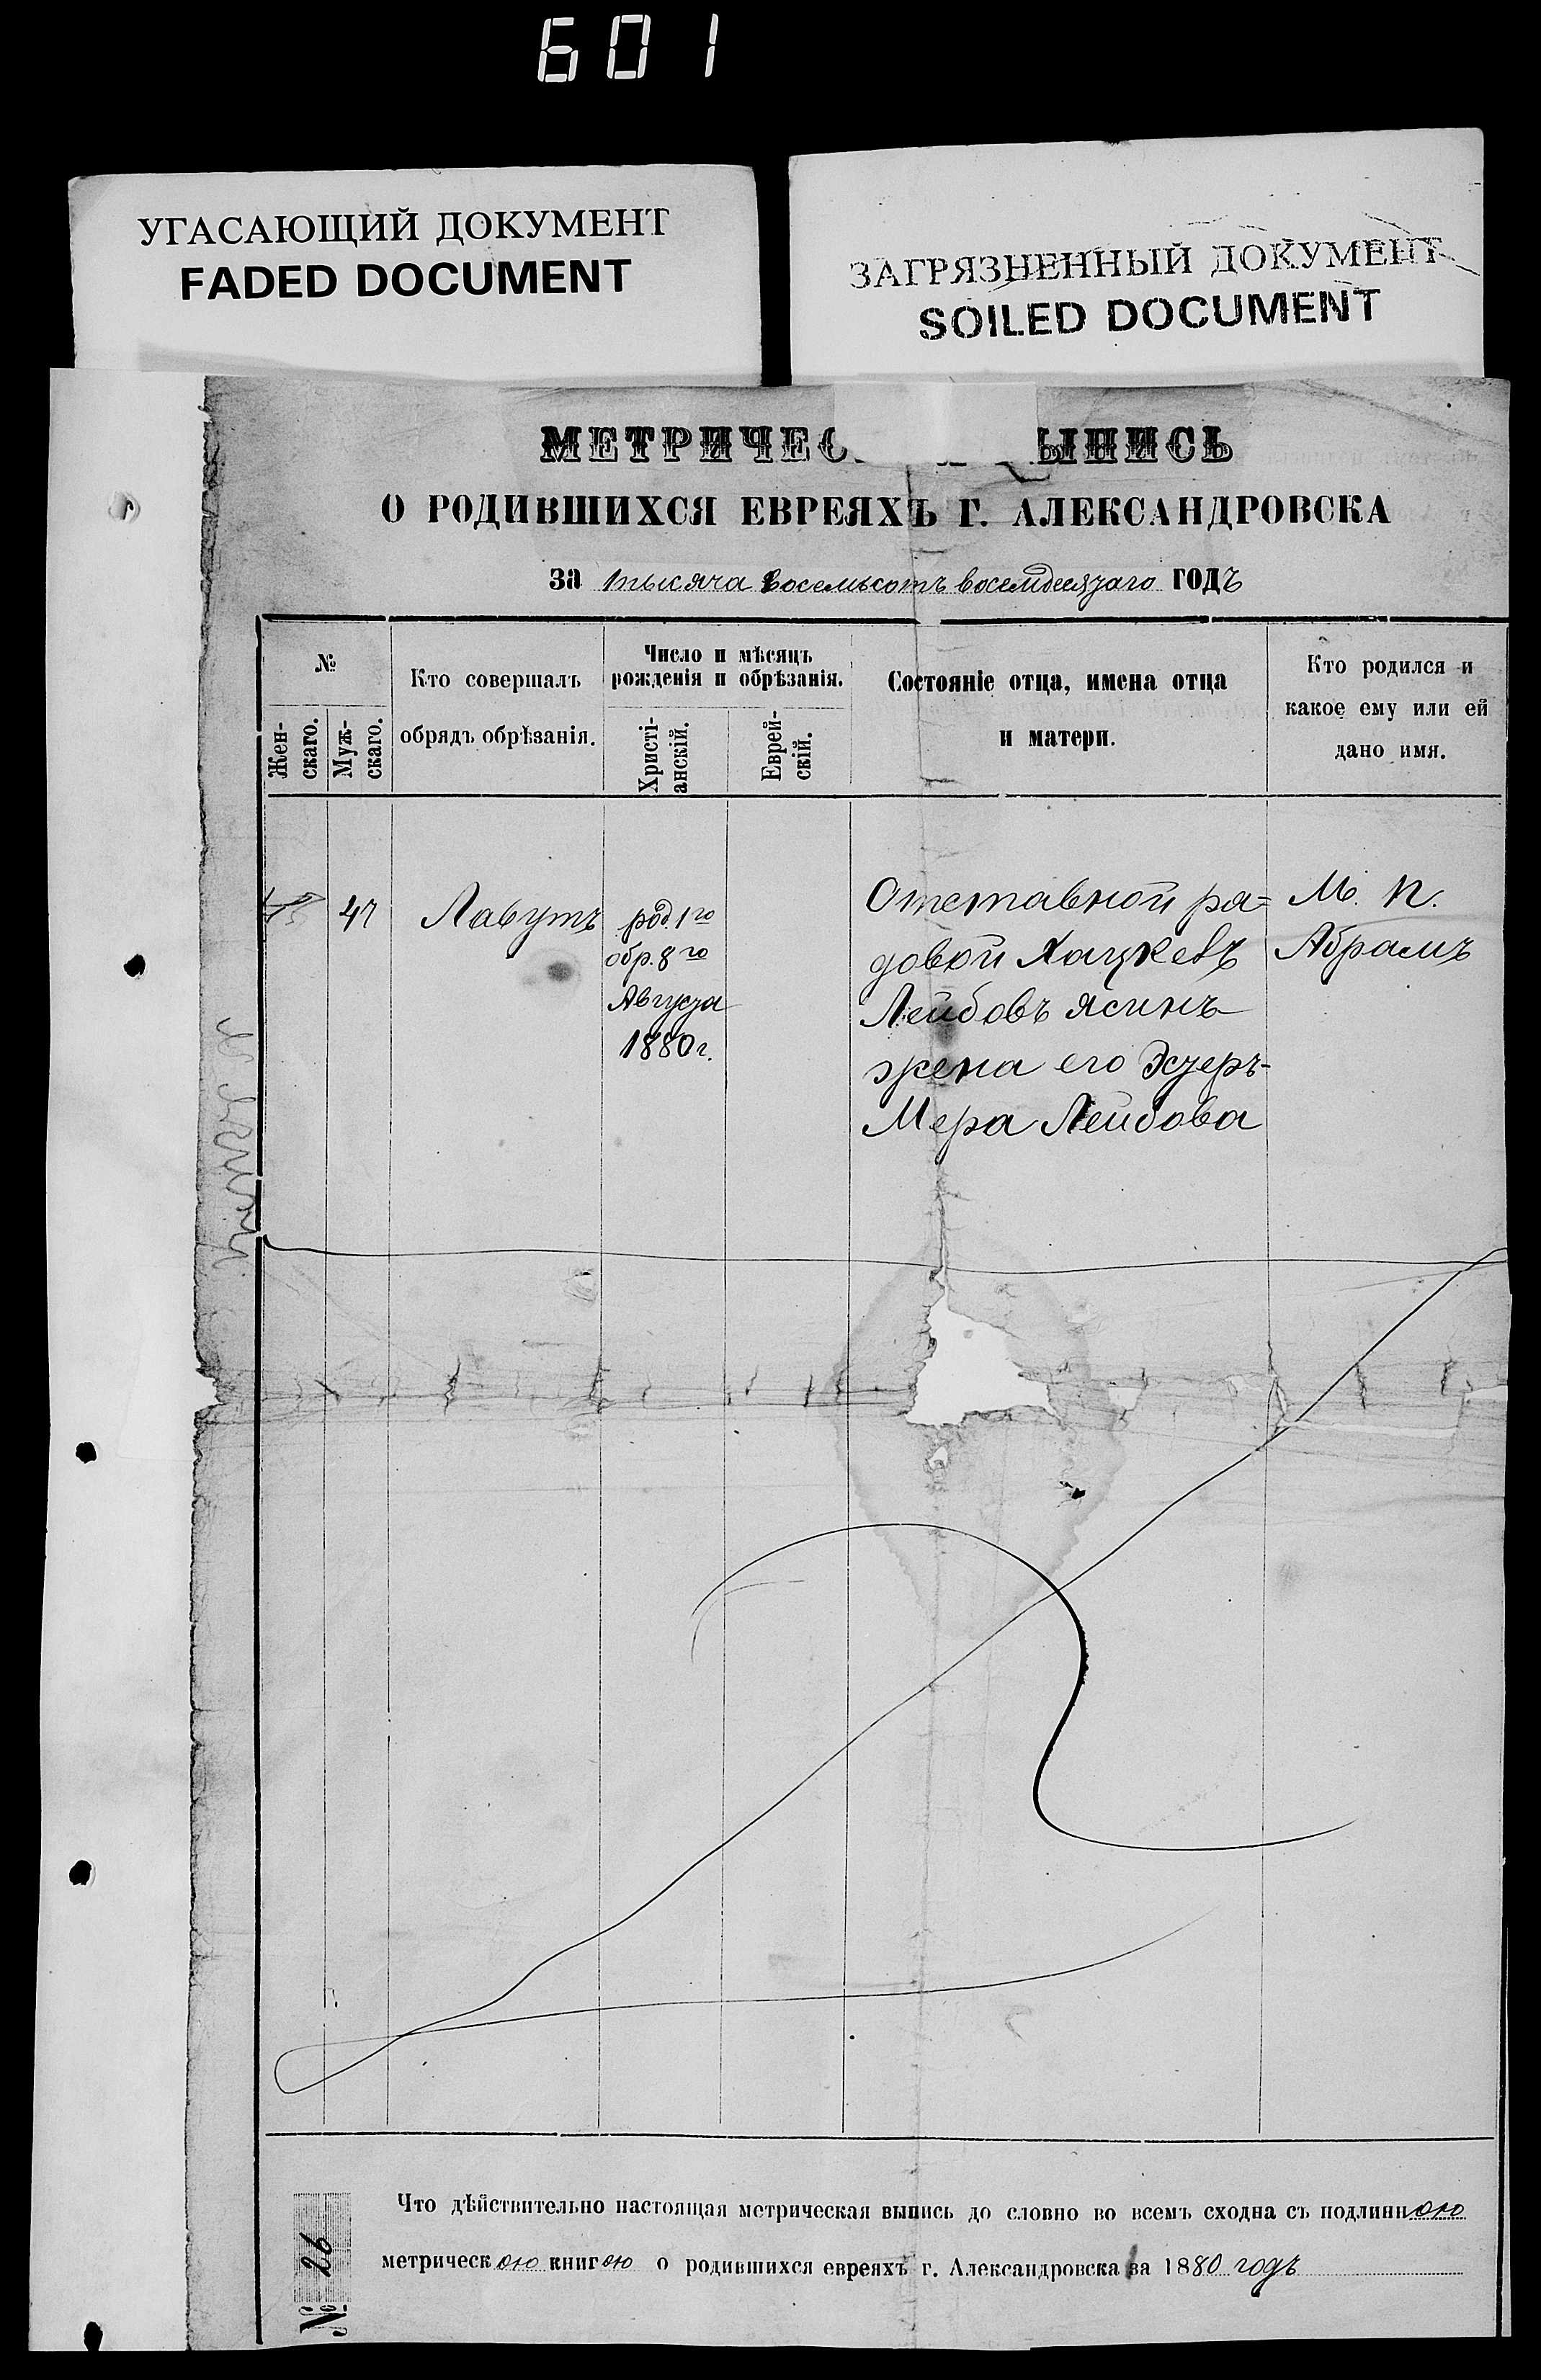 601
УГАСАЮЩИЙ ДОКУМЕНТ
FADED DOCUMENT
ЗАГРЯЗНЕННЫЙ ДОКУМЕНТ
SOILED DOCUMENT
МЕТРИЧЕС ЫПИСЬ
О РОДИВШИХСЯ ЕВРЕЯХЪ Г. АЛЕКСАНДРОВСКА
за тысяча восемьсотъ восемдесятаго годъ
№
Жен-
скаго.
Муж-
скаго.
Кто совершалъ
обрядъ обрѣзанія.
Число и мѣсяцъ
рожденія и обрѣзанія.
Христі-
анскій.
Еврей-
скій.
Состояніе отца, имена отца
и матери.
Кто родился и
какое ему или ей
дано имя.
47
Лавутъ
род. 1го
обр. 8го
Августа
1880 г.
Отставной ря=
довой Хацкевъ
Лейбовъ Ясинъ
жена его Эстеръ-
Мера Лейбова
М. п.
Абрамъ
Что дѣйствительно настоящая метрическая выпись до словно во всемъ сходна съ подлинною
метрическою книгою о родившихся евреяхъ г. Александровска за 1880 годъ
№ 26